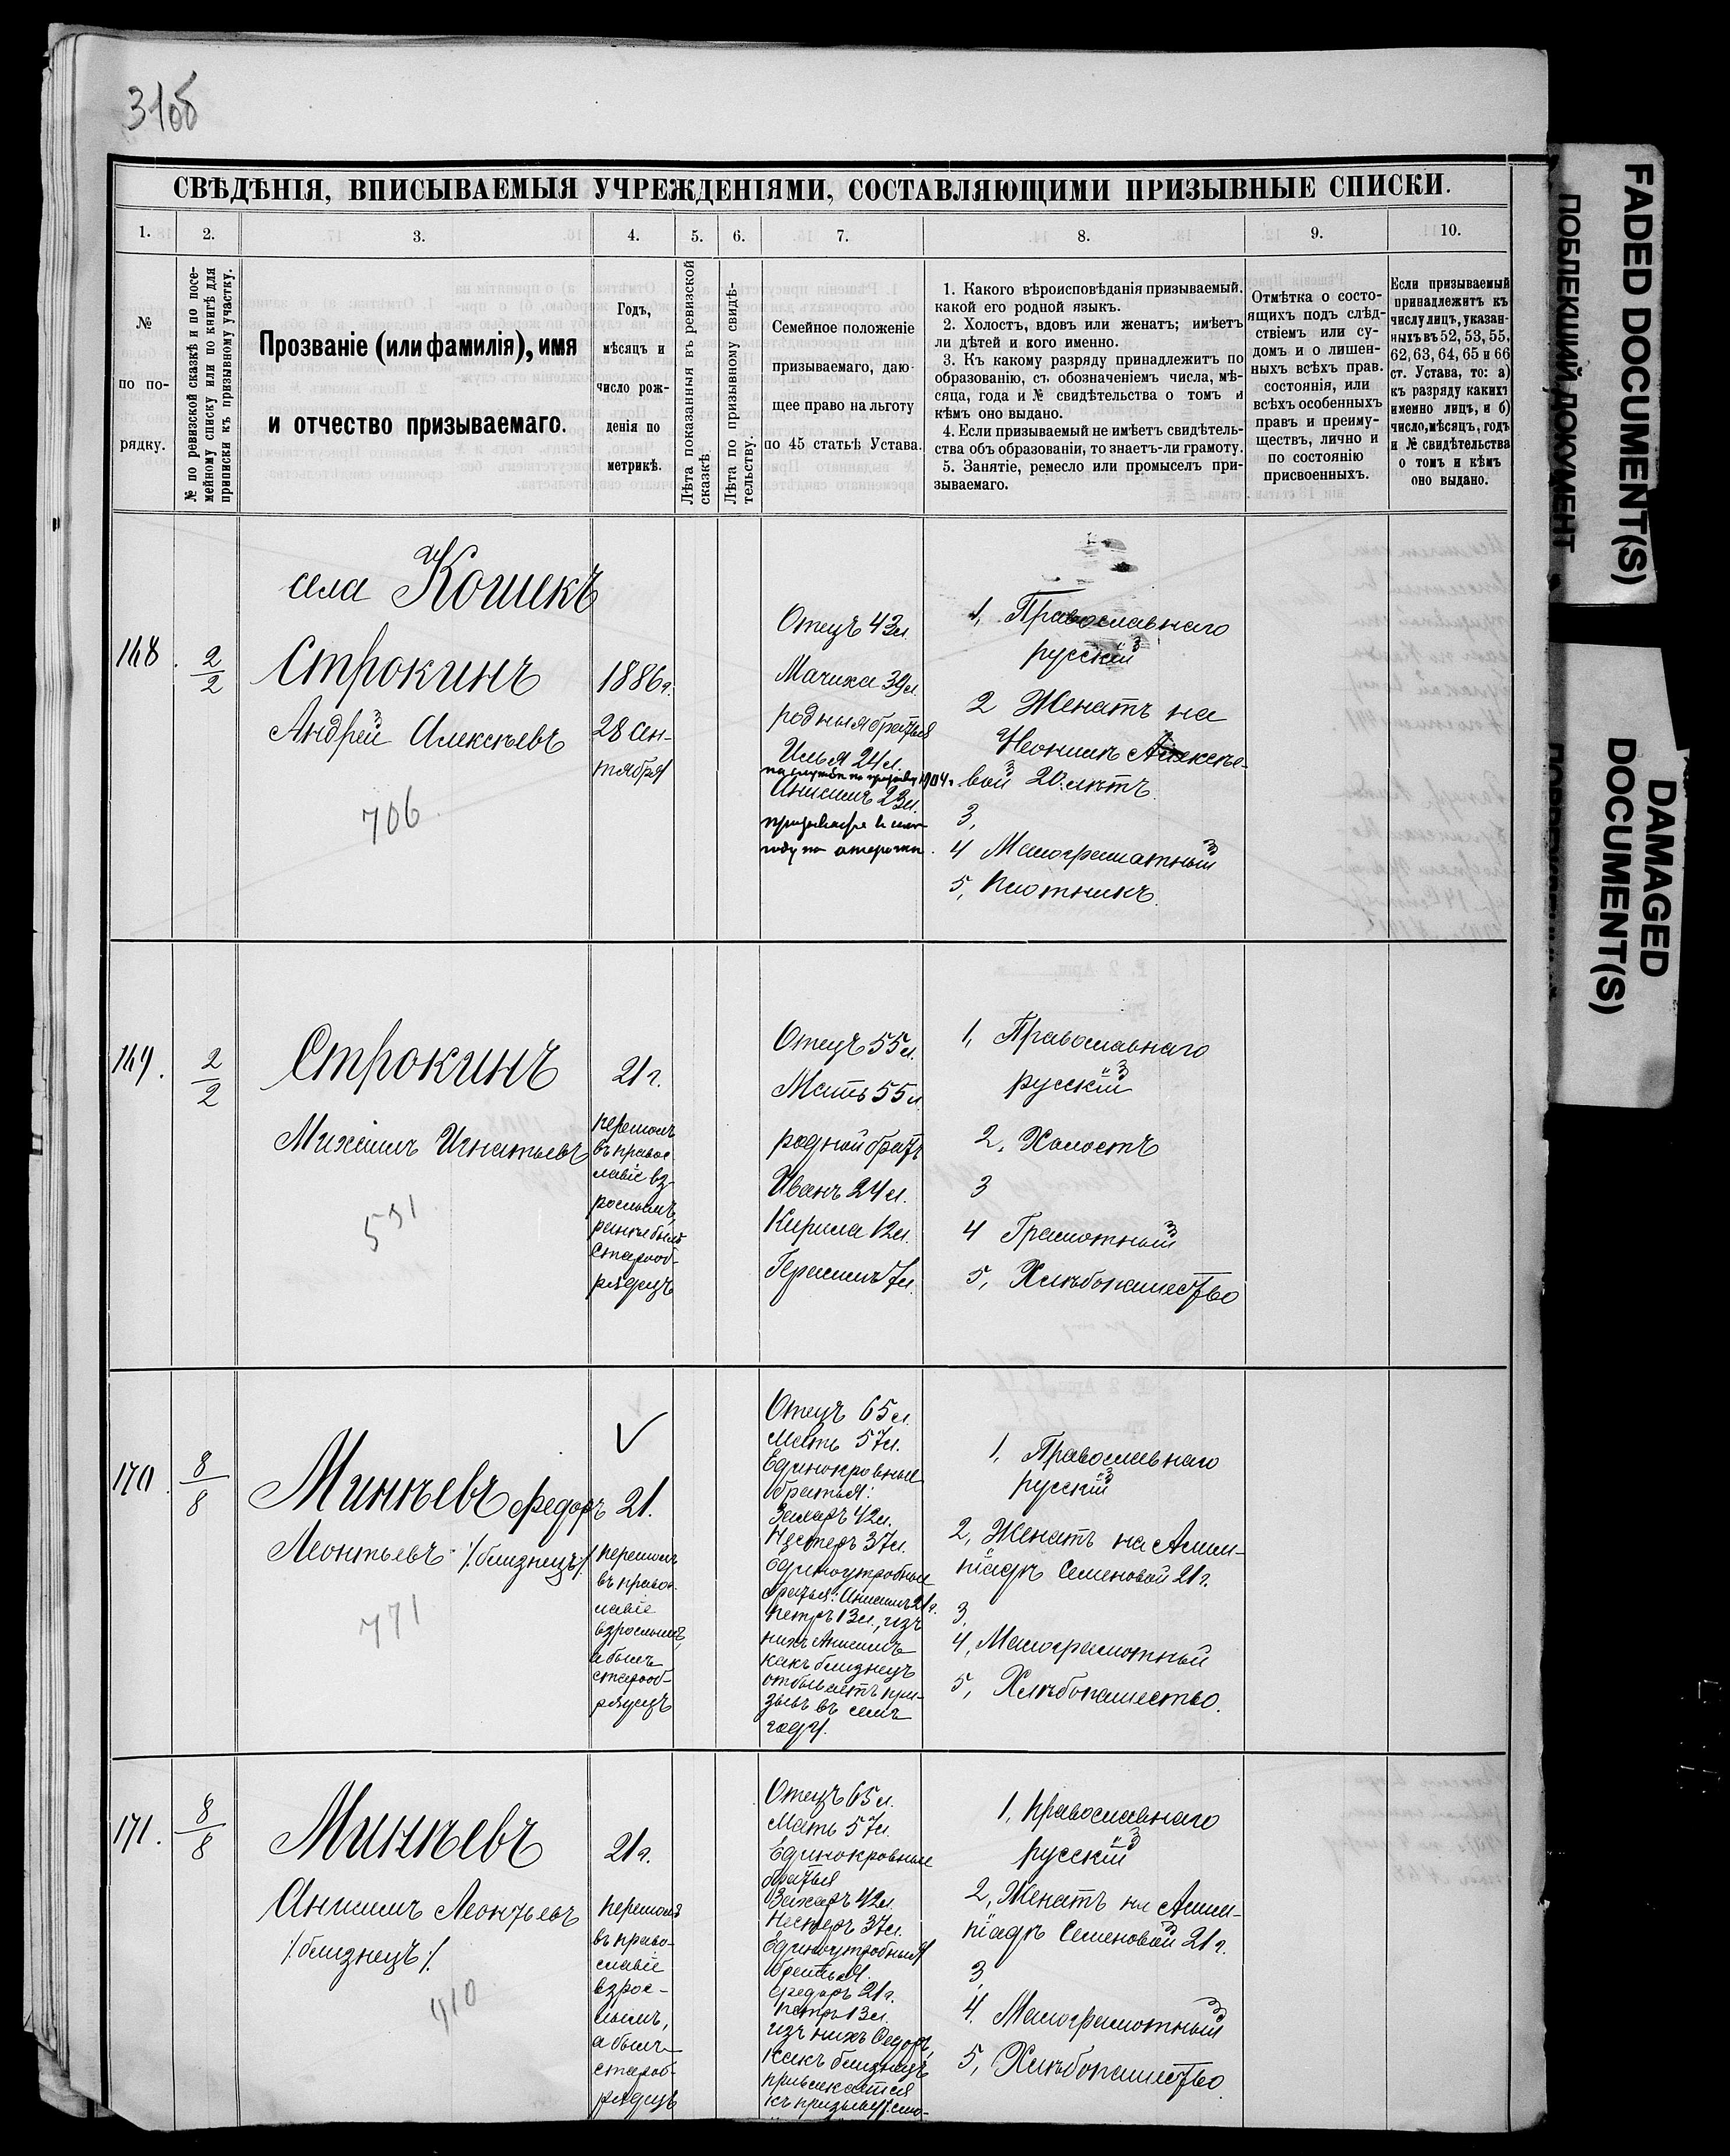 310б
СВѢДѢНІЯ, ВПИСЫВАЕМЫЯ УЧРЕЖДЕНІЯМИ, СОСТАВЛЯЮЩИМИ ПРИЗЫВНЫЕ СПИСКИ.
1.
2.
3.
4.
5.
6.
7.
8.
9.
10.
№
по по-
рядку.
№ по ревизской сказкѣ и по посе-
мейному списку или по книгѣ для
приписки къ призывному участку.
Прозваніе (или фамилія), имя
и отчество призываемаго.
Годъ,
мѣсяцъ и
число рож-
денія по
метрикѣ.
Лѣта показанныя въ ревизской
сказкѣ.
Лѣта по призывному свидѣ-
тельству.
Семейное положеніе
призываемаго, даю-
щее право на льготу
по 45 статьѣ Устава.
1. Какого вѣроисповѣданія призываемый,
какой его родной языкъ.
2. Холостъ, вдовъ или женатъ; имѣетъ
ли дѣтей и кого именно.
3. Къ какому разряду принадлежитъ по
образованію, съ обозначеніемъ числа, мѣ-
сяца, года и № свидѣтельства о томъ и
кѣмъ оно выдано.
4. Если призываемый не имѣетъ свидѣтель-
ства объ образованіи, то знаетъ-ли грамоту.
5. Занятіе, ремесло или промыселъ при-
зываемаго.
Отмѣтка о состо-
ящихъ подъ слѣд-
ствіемъ или су-
домъ и о лишен-
ныхъ всѣхъ прав.
состоянія, или
всѣхъ особенныхъ
правъ и преиму-
ществъ, лично и
по состоянію
присвоенныхъ.
Если призываемый
принадлежитъ къ
числу лицъ, указан-
ныхъ въ 52, 53, 55,
62, 63, 64, 65 и 66
ст. Устава, то: а)
къ разряду какихъ
именно лицъ, и б)
число, мѣсяцъ, годъ
и № свидѣтельства
о томъ и кѣмъ
оно выдано.
села Кошекъ
168.
2
2
Строкинъ
Андрей Алексѣевъ
706
1886г.
28 сен-
тября
Отецъ 43л.
Мачиха 39л.
родныя братья
Илья 24л.
на службѣ по призыву 1904г.
Анисимъ 23л.
1, Православнаго
русскій
2 Женатъ на
Алексѣе-
вой 20 лѣтъ.
3,
4 Малограматный
5, Плотникъ.
169.
2
2
Строкинъ
Михаилъ Игнатьевъ
531
21г.
перешолъ
въ правос
лавіе вз-
рослымъ,
ранѣе былъ
старооб-
рядецъ
Отецъ 55л.
Мать 55л
родной братъ
Иванъ 24л.
Кирила 12л.
Герасимъ 7л.
1, Православнаго
русскій
2, Холостъ
3
4 Грамотный
5, Хлѣбопашество
170.
8
8
Минѣевъ Федоръ
Леонтьевъ ·/близнецъ/·
771
21.
перешолъ
въ право
славіе
взрослымъ,
а былъ
старооб-
рядецъ
Отецъ 65л.
Мать 57л.
Единокровные
братья:
Захаръ 42л.
Нестеръ 37л.
Единоутробные
братья: Анисимъ 21г.
Петръ 13л., изъ
нихъ Анисимъ
какъ близнецъ
отбываетъ при-
зывъ въ семъ
году.
1, Православнаго
русскій
2, Женатъ на Аскли-
піадѣ Семеновой 21г.
3,
4, Малограмотный
5, Хлѣбопашество.
171.
8
8
Минѣевъ
Анисимъ Леонтьевъ
·/близнецъ/·
910
21г.
перешолъ
въ право-
славіе
взрос-
лымъ,
а былъ
староб-
рядецъ
Отецъ 65л.
Мать 57л.
Единокровные
братья
Захаръ 42л.
Нестеръ 37л.
Единоутробныя
братья.
Федоръ 21г.
Петръ 13л.
изъ нихъ Федоръ,
какъ близнецъ
привлекается
къ призыву
1, Православнаго
русскій
2, Женатъ на Аскли-
піадѣ Семеновой 21г.
3,
4. Малограмотный
5, Хлѣбопашество.
FADED DOCUMENT(S)
ПОБЛЕКШИЙ ДОКУМЕНТ
DAMAGED
DOCUMENT(S)